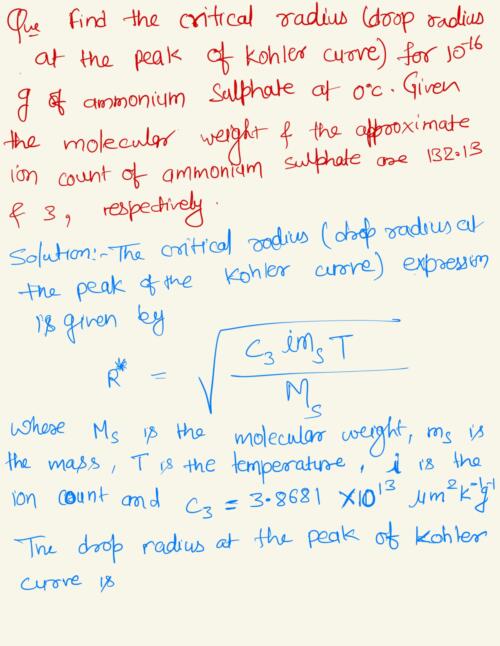 Que Find the critical radius (drop radius
at the peak of Kohler curve) for 10^-16
g of ammonium Sulphate at 0°C. Given
the molecular weight & the approximate
ion count of ammonium sulphate are 132.13
& 3, respectively.
Solution:- The critical radius (drop radius at
the peak of the Kohler curve) expression
is given by
R* = √(C₃ i mₛ T / Mₛ)
Where Mₛ is the molecular weight, mₛ is
the mass, T is the temperature, i is the
ion count and C₃ = 3.8681 × 10^13 μm² k⁻¹ g⁻¹
The drop radius at the peak of Kohler
curve is